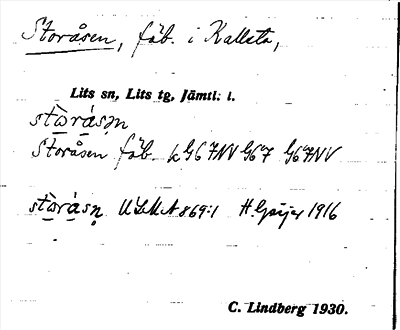 Storåsen, fäb. i Kallsta,
Lits sn, Lits tg, Jämtl. l.
Storåsen fäb. k G67NV G67 G67NV
ULMA 869:1 H. Geijer 1916
C. Lindberg 1930.